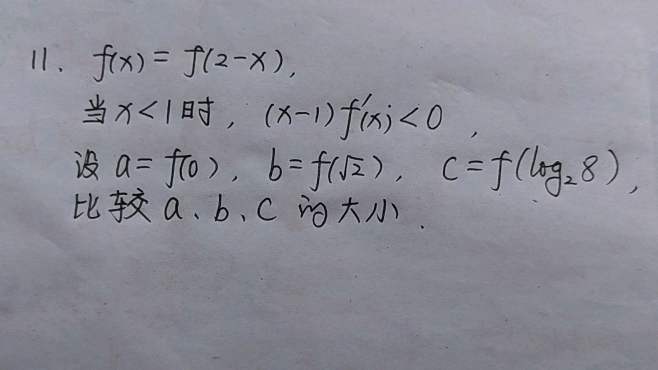 11. f(x) = f(2-x),
当x<1时, (x-1)f'(x)<0,
设a=f(0), b=f(√2), c=f(log₂8),
比较a、b、c的大小.